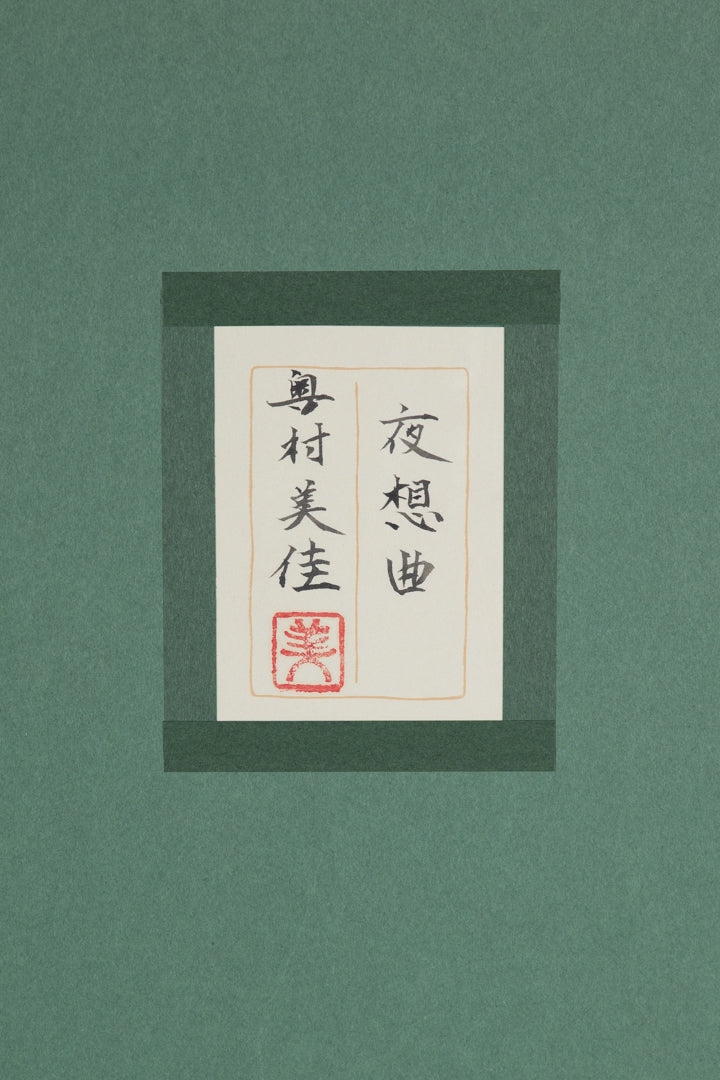 夜想曲
奥村美佳
美